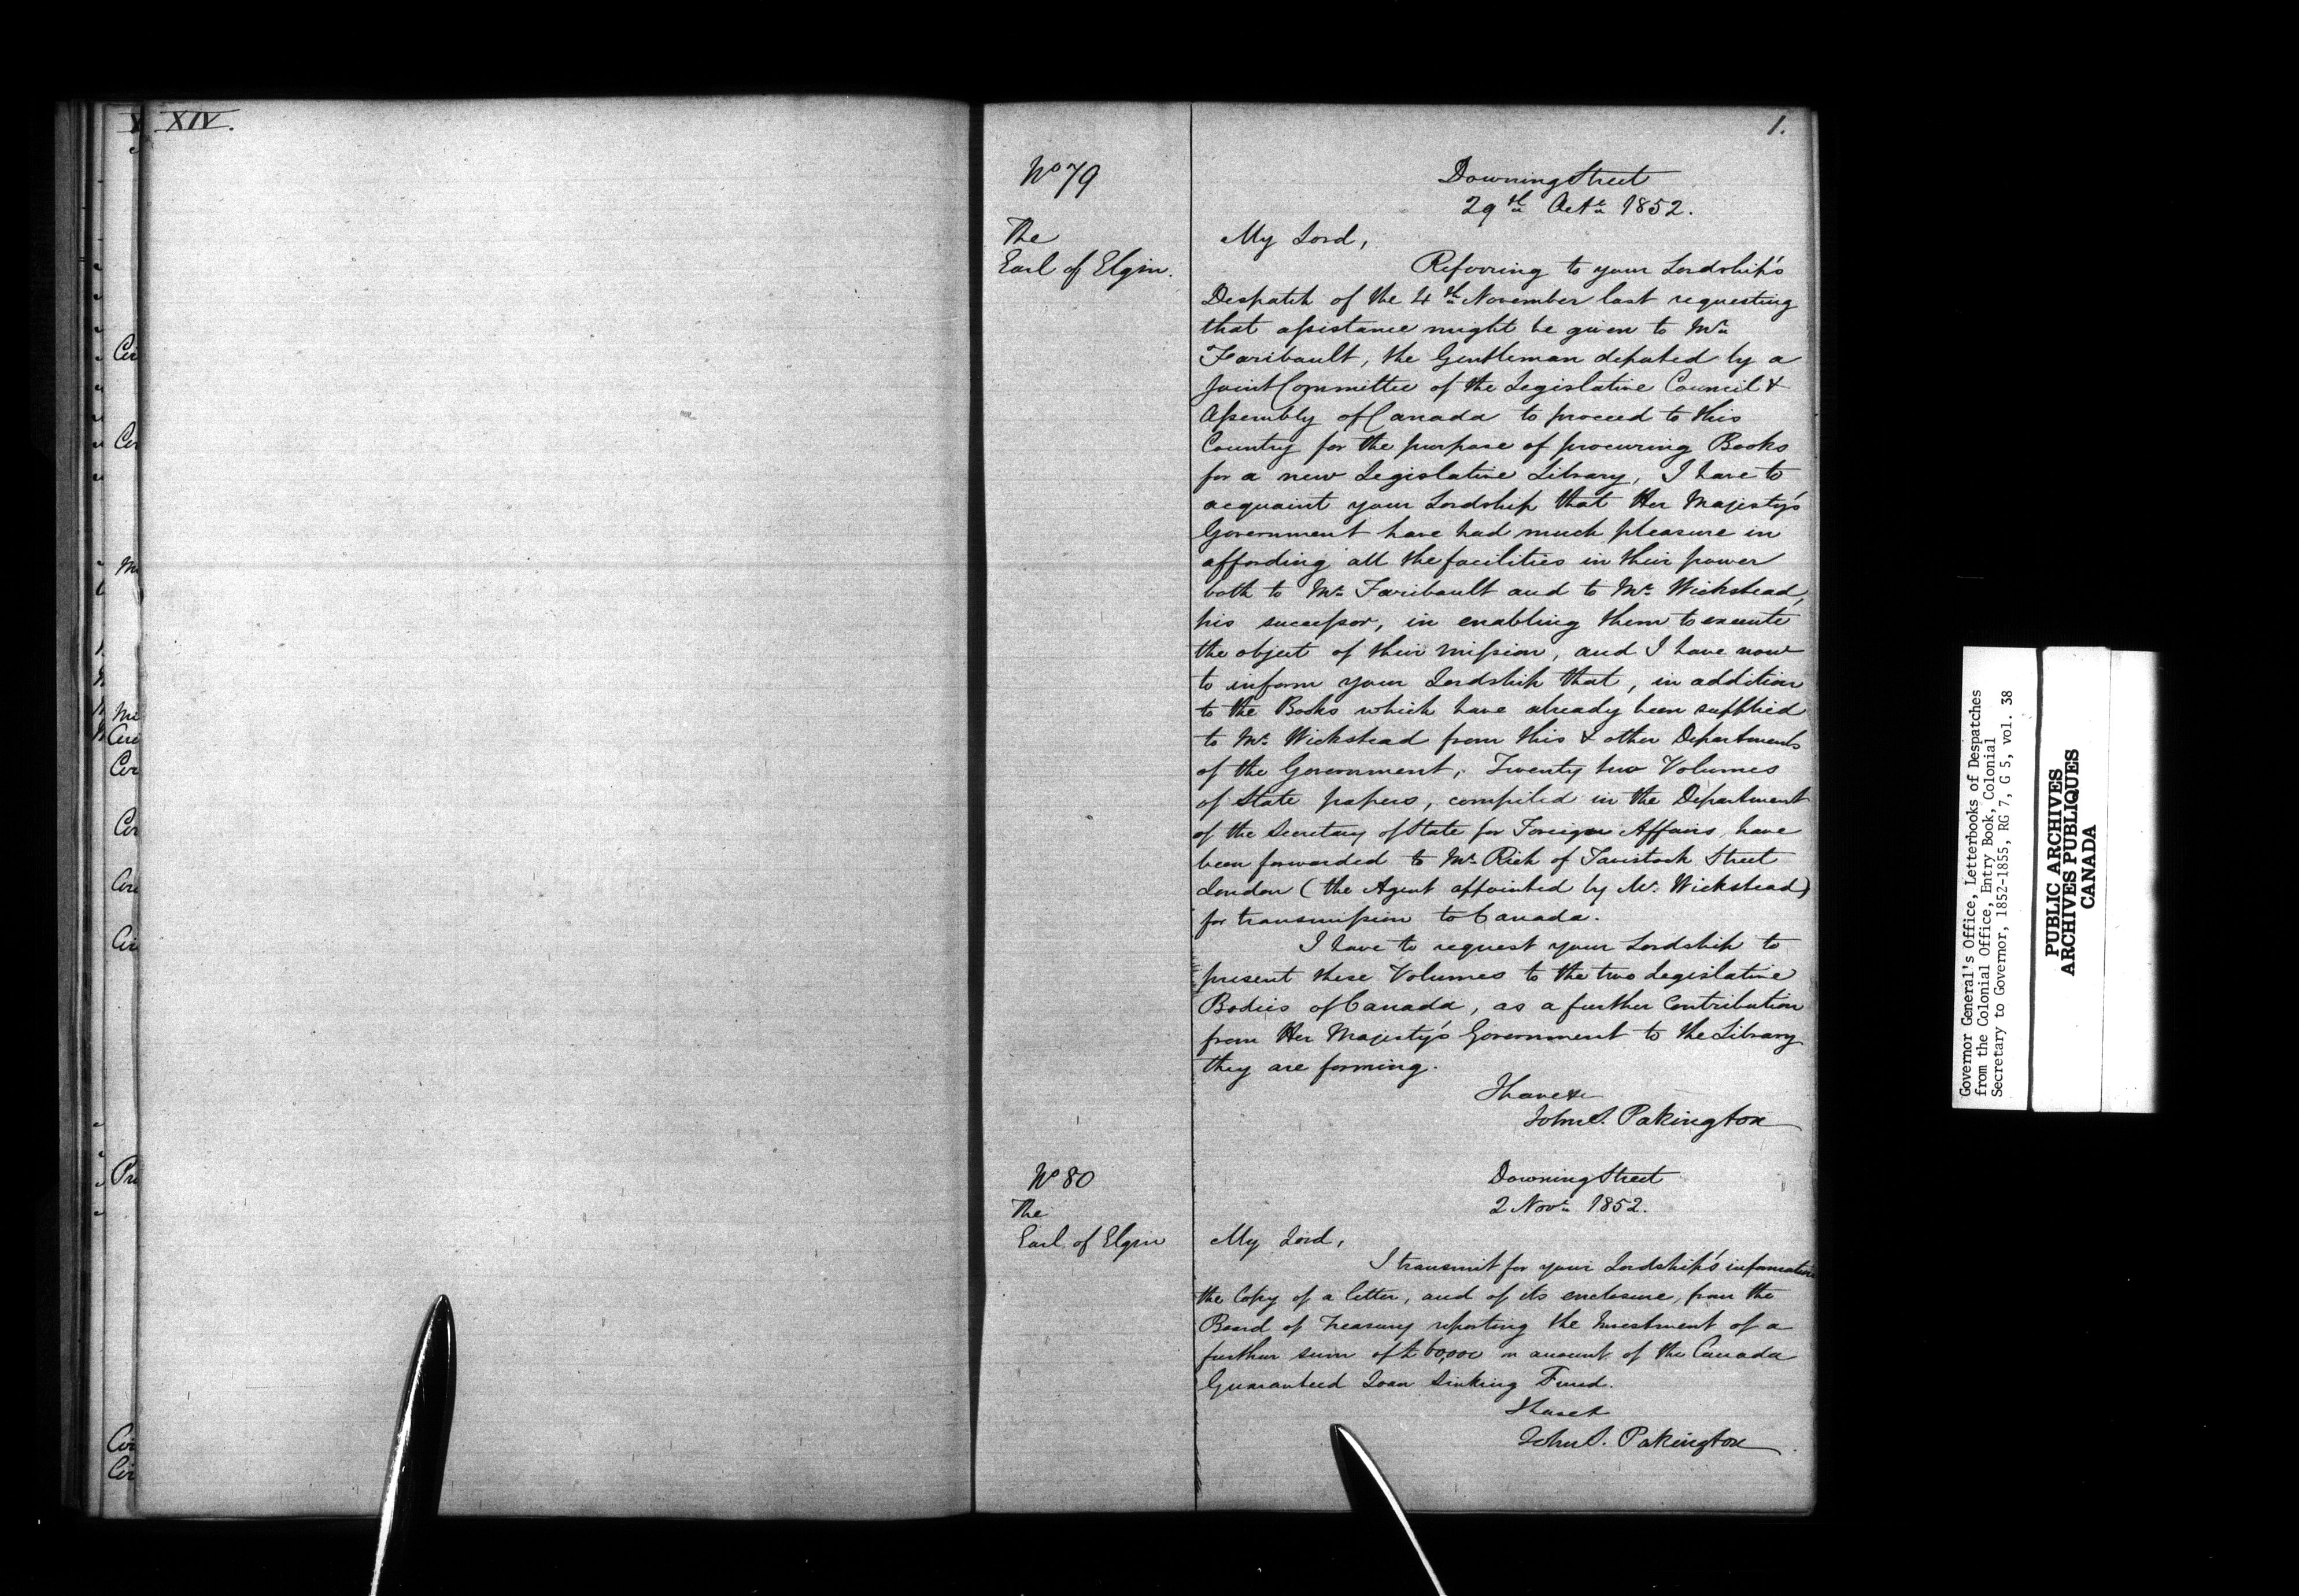 XIV.
1.
No 79
Downing Street
29th Octr 1852.
The
Earl of Elgin.
My Lord,
Referring to your Lordship's
Despatch of the 4th November last requesting
that assistance might be given to Mr
Faribault, the Gentleman deputed by a
Joint Committee of the Legislative Council &
Assembly of Canada to proceed to this
Country for the purpose of procuring Books
for a new Legislative Library, I have to
acquaint your Lordship that Her Majesty's
Government have had much pleasure in
affording all the facilities in their power
both to Mr Faribault and to Mr Wickstead,
his successor, in enabling them to execute
the object of their mission, and I have now
to inform your Lordship that, in addition
to the Books which have already been supplied
to Mr Wickstead from this & other Departments
of the Government, Twenty two Volumes
of State papers, compiled in the Department
of the Secretary of State for Foreign Affairs, have
been forwarded to Mr Rich of Tavistock Street
London (the Agent appointed by Mr Wickstead)
for transmission to Canada.
I have to request your Lordship to
present these Volumes to the two Legislative
Bodies of Canada, as a further Contribution
from Her Majesty's Government to the Library
they are forming.
I have &c
John S. Pakington
No 80
Downing Street
2 Novr 1852.
The
Earl of Elgin
My Lord,
I transmit for your Lordship's information
the Copy of a letter, and of its enclosure, from the
Board of Treasury reporting the Investment of a
further sum of £60,000 on account of the Canada
Guaranteed Loan Sinking Fund.
I have &
John S. Pakington
Governor General's Office, Letterbooks of Despatches
from the Colonial Office, Entry Book, Colonial
Secretary to Governor, 1852-1855, RG 7, G 5, vol. 38
PUBLIC ARCHIVES
ARCHIVES PUBLIQUES
CANADA